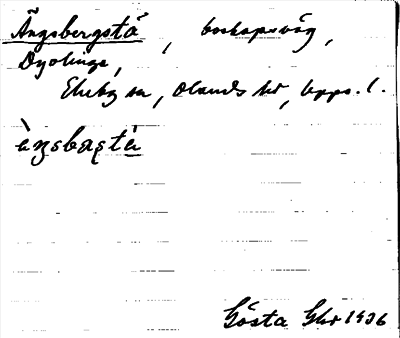 Ängsbergstå, boskapsväg,
Dyvlinge,
Ekeby sn, Olands hd, Upps. l.
àŋsbaʂtà
Gösta Ghr 1936